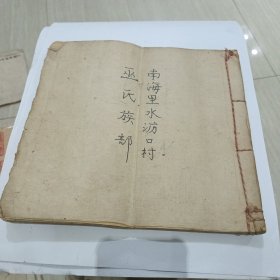 南海里水沥口村
巫氏族部